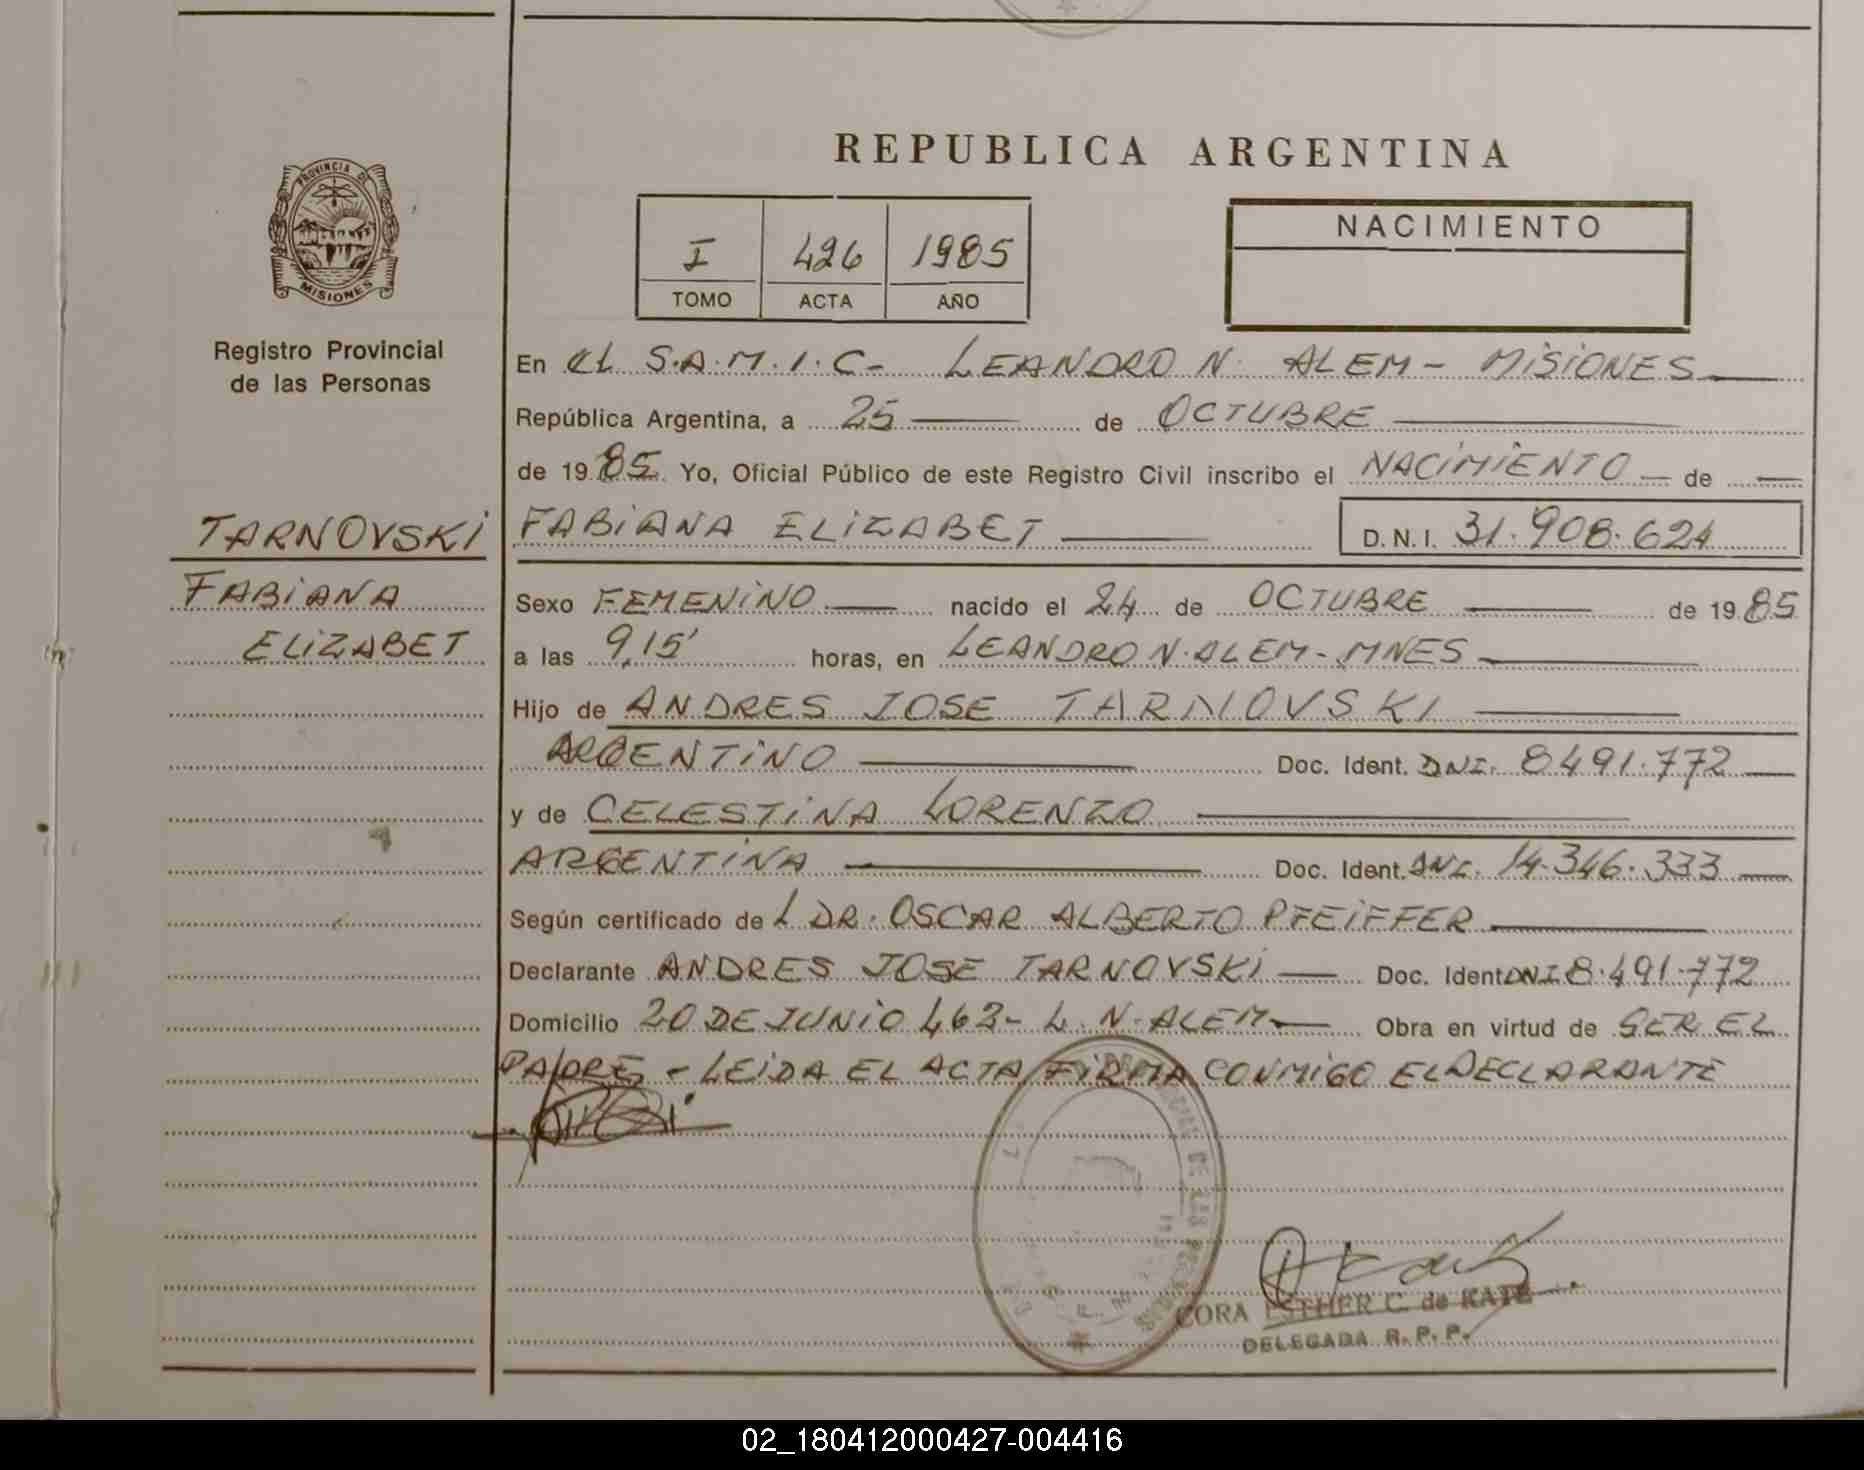 REPUBLICA ARGENTINA
PROVINCIA DE MISIONES
Registro Provincial
de las Personas
I 426 1985
TOMO ACTA AÑO
NACIMIENTO
En EL S.A.M.I.C- LEANDRO N. ALEM - MISIONES
República Argentina, a 25 de OCTUBRE
de 1985. Yo, Oficial Público de este Registro Civil inscribo el NACIMIENTO de
TARNOVSKI
FABIANA
ELIZABET
FABIANA ELIZABET D.N.I. 31.908.624
Sexo FEMENINO nacido el 24 de OCTUBRE de 1985
a las 9,15' horas, en LEANDRO N. ALEM - MNES
Hijo de ANDRES JOSE TARNOVSKI
ARGENTINO Doc. Ident. DNI. 8491.772
y de CELESTINA LORENZO
ARGENTINA Doc. Ident. DNI. 14.346.333
Según certificado de L DR. OSCAR ALBERTO PFEIFFER
Declarante ANDRES JOSE TARNOVSKI Doc. Ident DNI 8.491.772
Domicilio 20 DE JUNIO 462 - L. N. ALEM Obra en virtud de SER EL
PADRE - LEIDA EL ACTA FIRMA CONMIGO EL DECLARANTE
CORA ESTHER C. de KATZ
DELEGADA R. P. P.
02_180412000427-004416